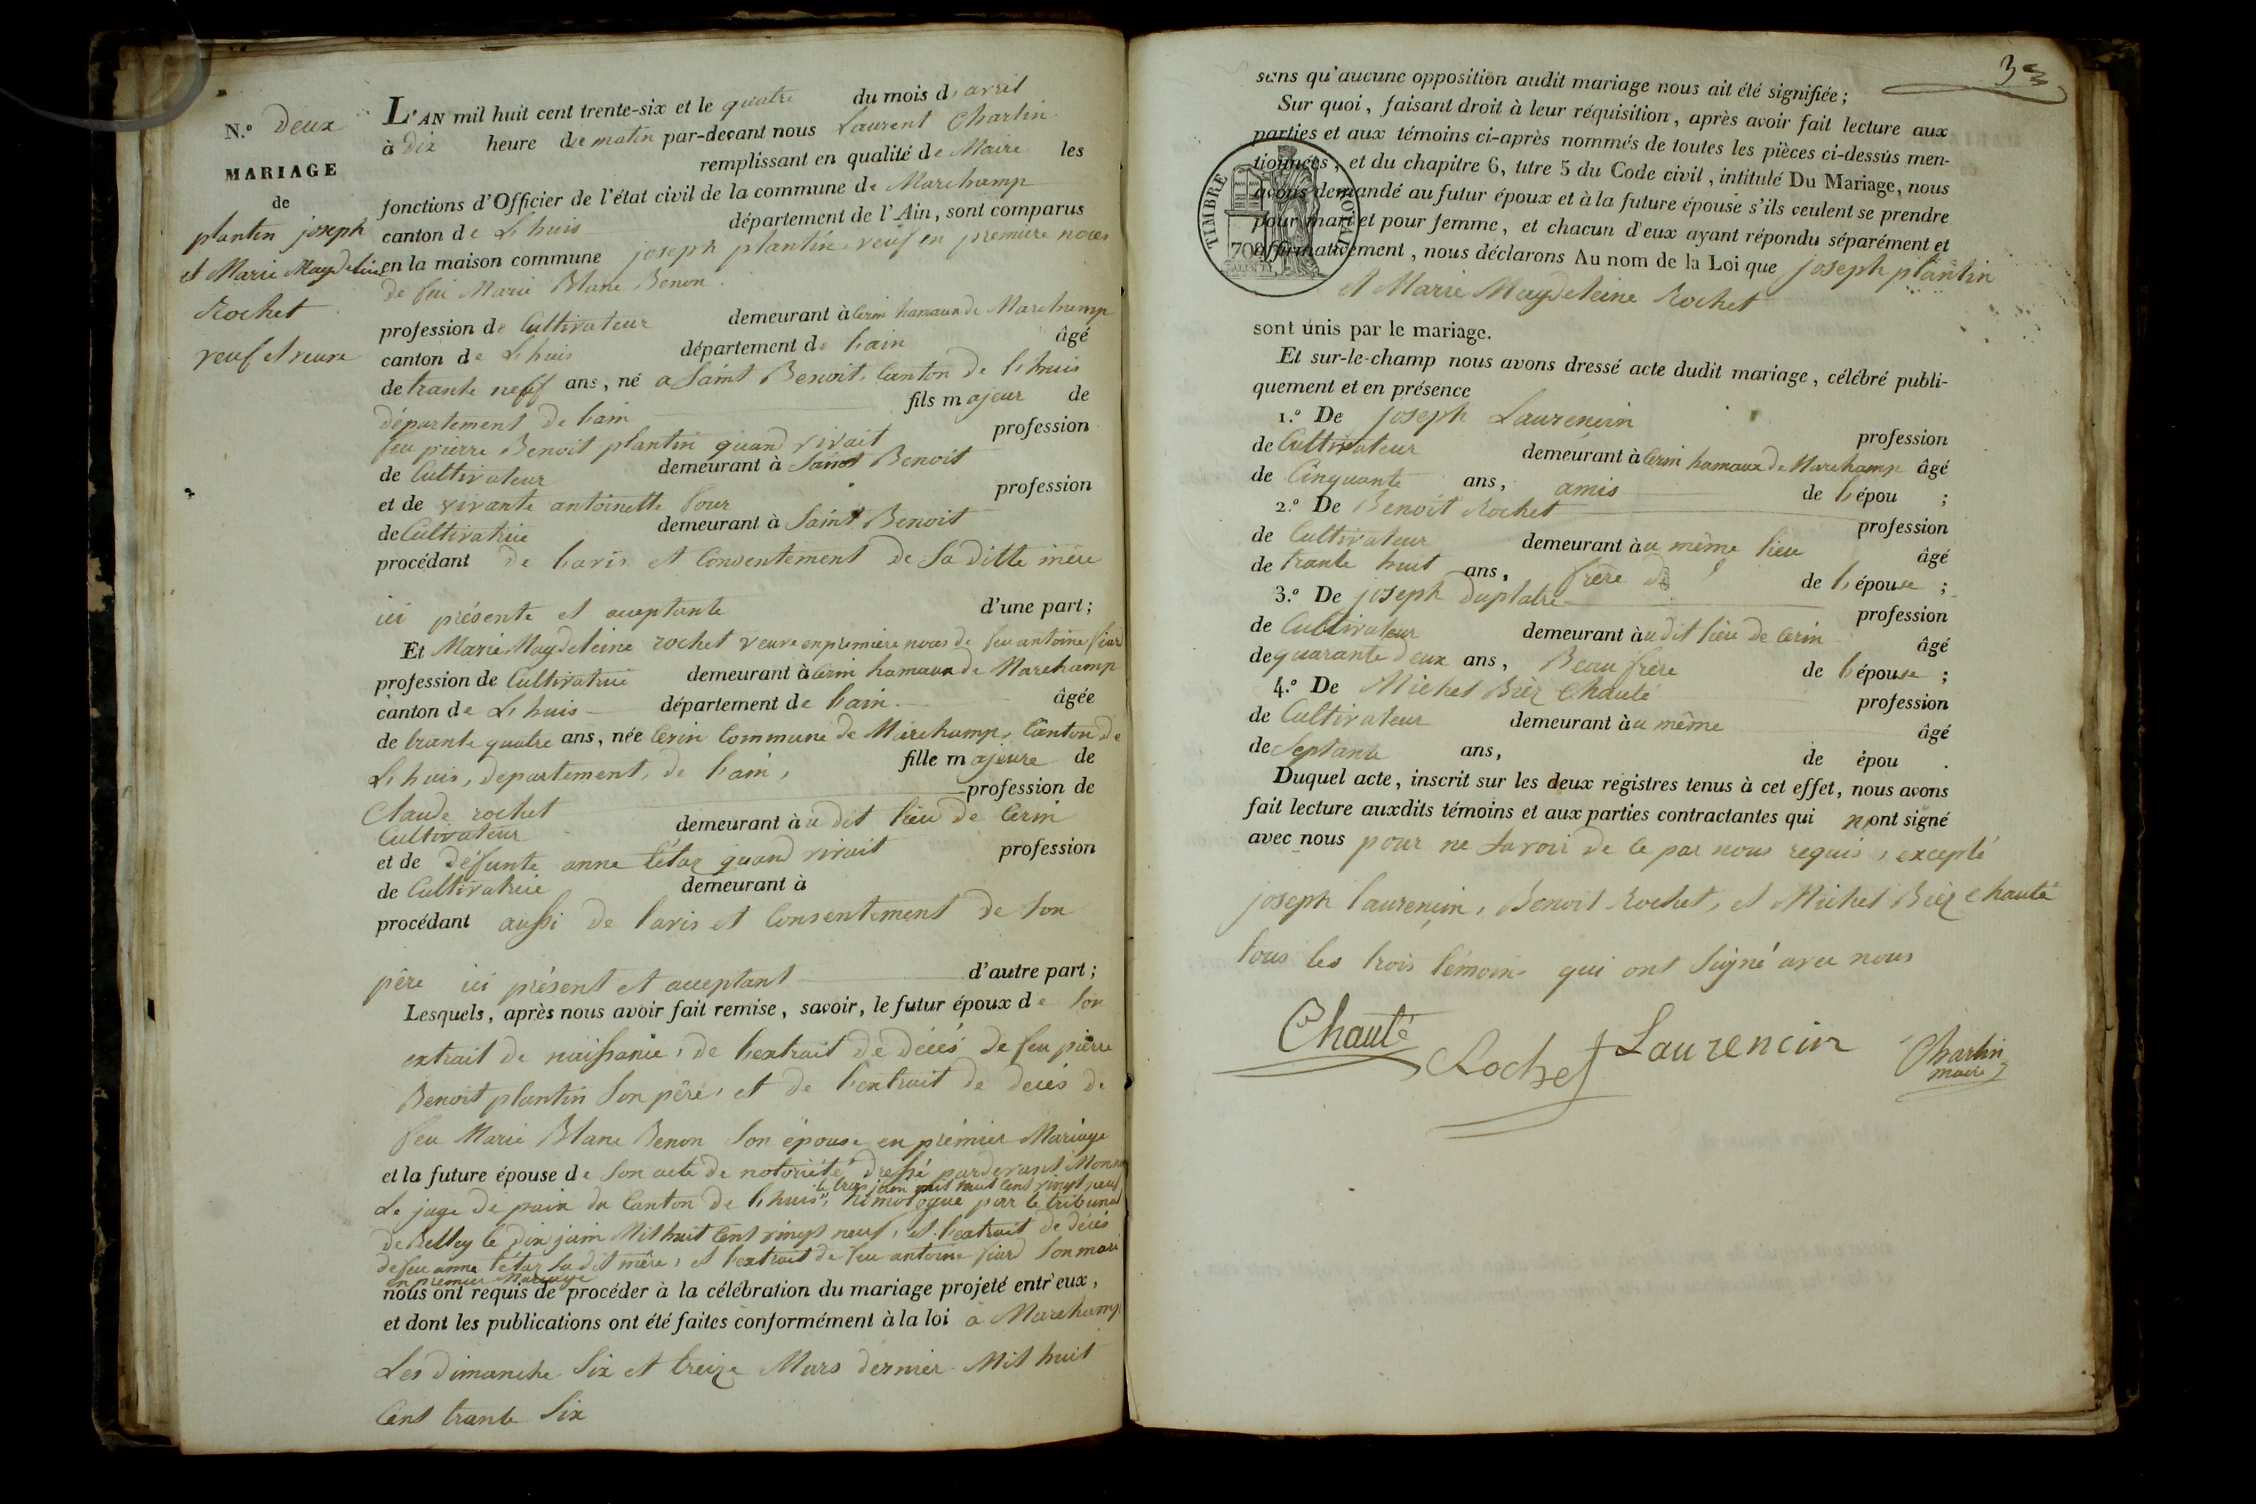 N.º deux
MARIAGE
de
plantin joseph
et Marie Magdeleine
Rochet
veuf et veuve
L'AN mil huit cent trente-six et le quatre du mois d'avril
à dix heure de matin par-devant nous Laurent Charlin
remplissant en qualité de Maire les
fonctions d'Officier de l'état civil de la commune de Marchamp
canton de Lhuis département de l'Ain, sont comparus
en la maison commune joseph plantin veuf en premiere noces
de feu Marie Blanc Benon
profession de Cultivateur demeurant à Cerin hamaux de Marchamp
canton de Lhuis département de lain âgé
de trante neff ans, né a Saint Benoit, Canton de lhuis
département de lain fils majeur de
feu pierre Benoit plantin quand vivait profession
de Cultivateur demeurant à Saint Benoit
et de vivante antoinette four profession
de Cultivatrice demeurant à Saint Benoit
procédant de lavis et Consentement de Sa ditte mère
ici présente et acceptante d'une part;
Et Marie Magdeleine rochet veuve en premiere noces de feu antoine
profession de Cultivatrice demeurant à Cerin hamaux de Marchamp
canton de Lhuis département de lain âgée
de trante quatre ans, née Cerin Commune de Marchamp, Canton de
Lhuis, departement, de lain, fille majeure de
Claude rochet profession de
Cultivateur demeurant àu dit lieu de Cerin
et de défunte anne tétaz quand vivait profession
de Cultivatrice demeurant à
procédant aussi de lavis et Consentement de Son
père ici présent et acceptant d'autre part;
Lesquels, après nous avoir fait remise, savoir, le futur époux de Son
extrait de naissance, de lextrait de décés de feu pierre
Benoit plantin Son père, et de lextrait de decés de
feu Marie Blanc Benon Son épouse en prémier Mariage
et la future épouse de Son acte de notoriété dressé pardevant
le trois juin mil huit Cent vingt neuf
Le juge de paix du Canton de lhuis, homologué par le tribunal
de Belley le dix juin Mil huit Cent vingt neuf, et lextrait de décés
de feu anne tétaz Sa dit mère, et lextrait de feu antoine Son mari
en premier Mariage
nous ont requis de procéder à la célébration du mariage projeté entr'eux,
et dont les publications ont été faites conformément à la loi a Marchamp
Les dimanche Six et treize Mars dernier Mil huit
Cent trante Six
3
sans qu'aucune opposition audit mariage nous ait été signifiée;
Sur quoi, faisant droit à leur réquisition, après avoir fait lecture aux
parties et aux témoins ci-après nommés de toutes les pièces ci-dessus men-
tionnées, et du chapitre 6, titre 5 du Code civil, intitulé Du Mariage, nous
avons demandé au futur époux et à la future épouse s'ils veulent se prendre
pour mari et pour femme, et chacun d'eux ayant répondu séparément et
affirmativement, nous déclarons Au nom de la Loi que joseph plantin
TIMBRE ROYAL
70
et Marie Magdeleine Rochet
sont unis par le mariage.
Et sur-le-champ nous avons dressé acte dudit mariage, célébré publi-
quement et en présence
1.º De joseph Laurencin profession
de Cultivateur demeurant à Cerin hamaux de Marchamp âgé
de Cinquante ans, amis de l'épou ;
2.º De Benoit Rochet profession
de Cultivateur demeurant àu même lieu âgé
de trante huit ans, frère de l'épouse ;
3.º De joseph Duplatre profession
de Cultivateur demeurant àu dit lieu de Cerin âgé
de quarante deux ans, Beau frère de l'épouse ;
4.º De Michel Bièz Chauté profession
de Cultivateur demeurant àu même âgé
de Septante ans, de épou .
Duquel acte, inscrit sur les deux registres tenus à cet effet, nous avons
fait lecture auxdits témoins et aux parties contractantes qui n'ont signé
avec nous pour ne Savoir de ce par nous requis, excepté
joseph laurencin, Benoit Rochet, et Michel Bièz Chauté
tous les trois témoins qui ont Signé avec nous
Chauté
Rochet
Laurencin
Charlin
maire